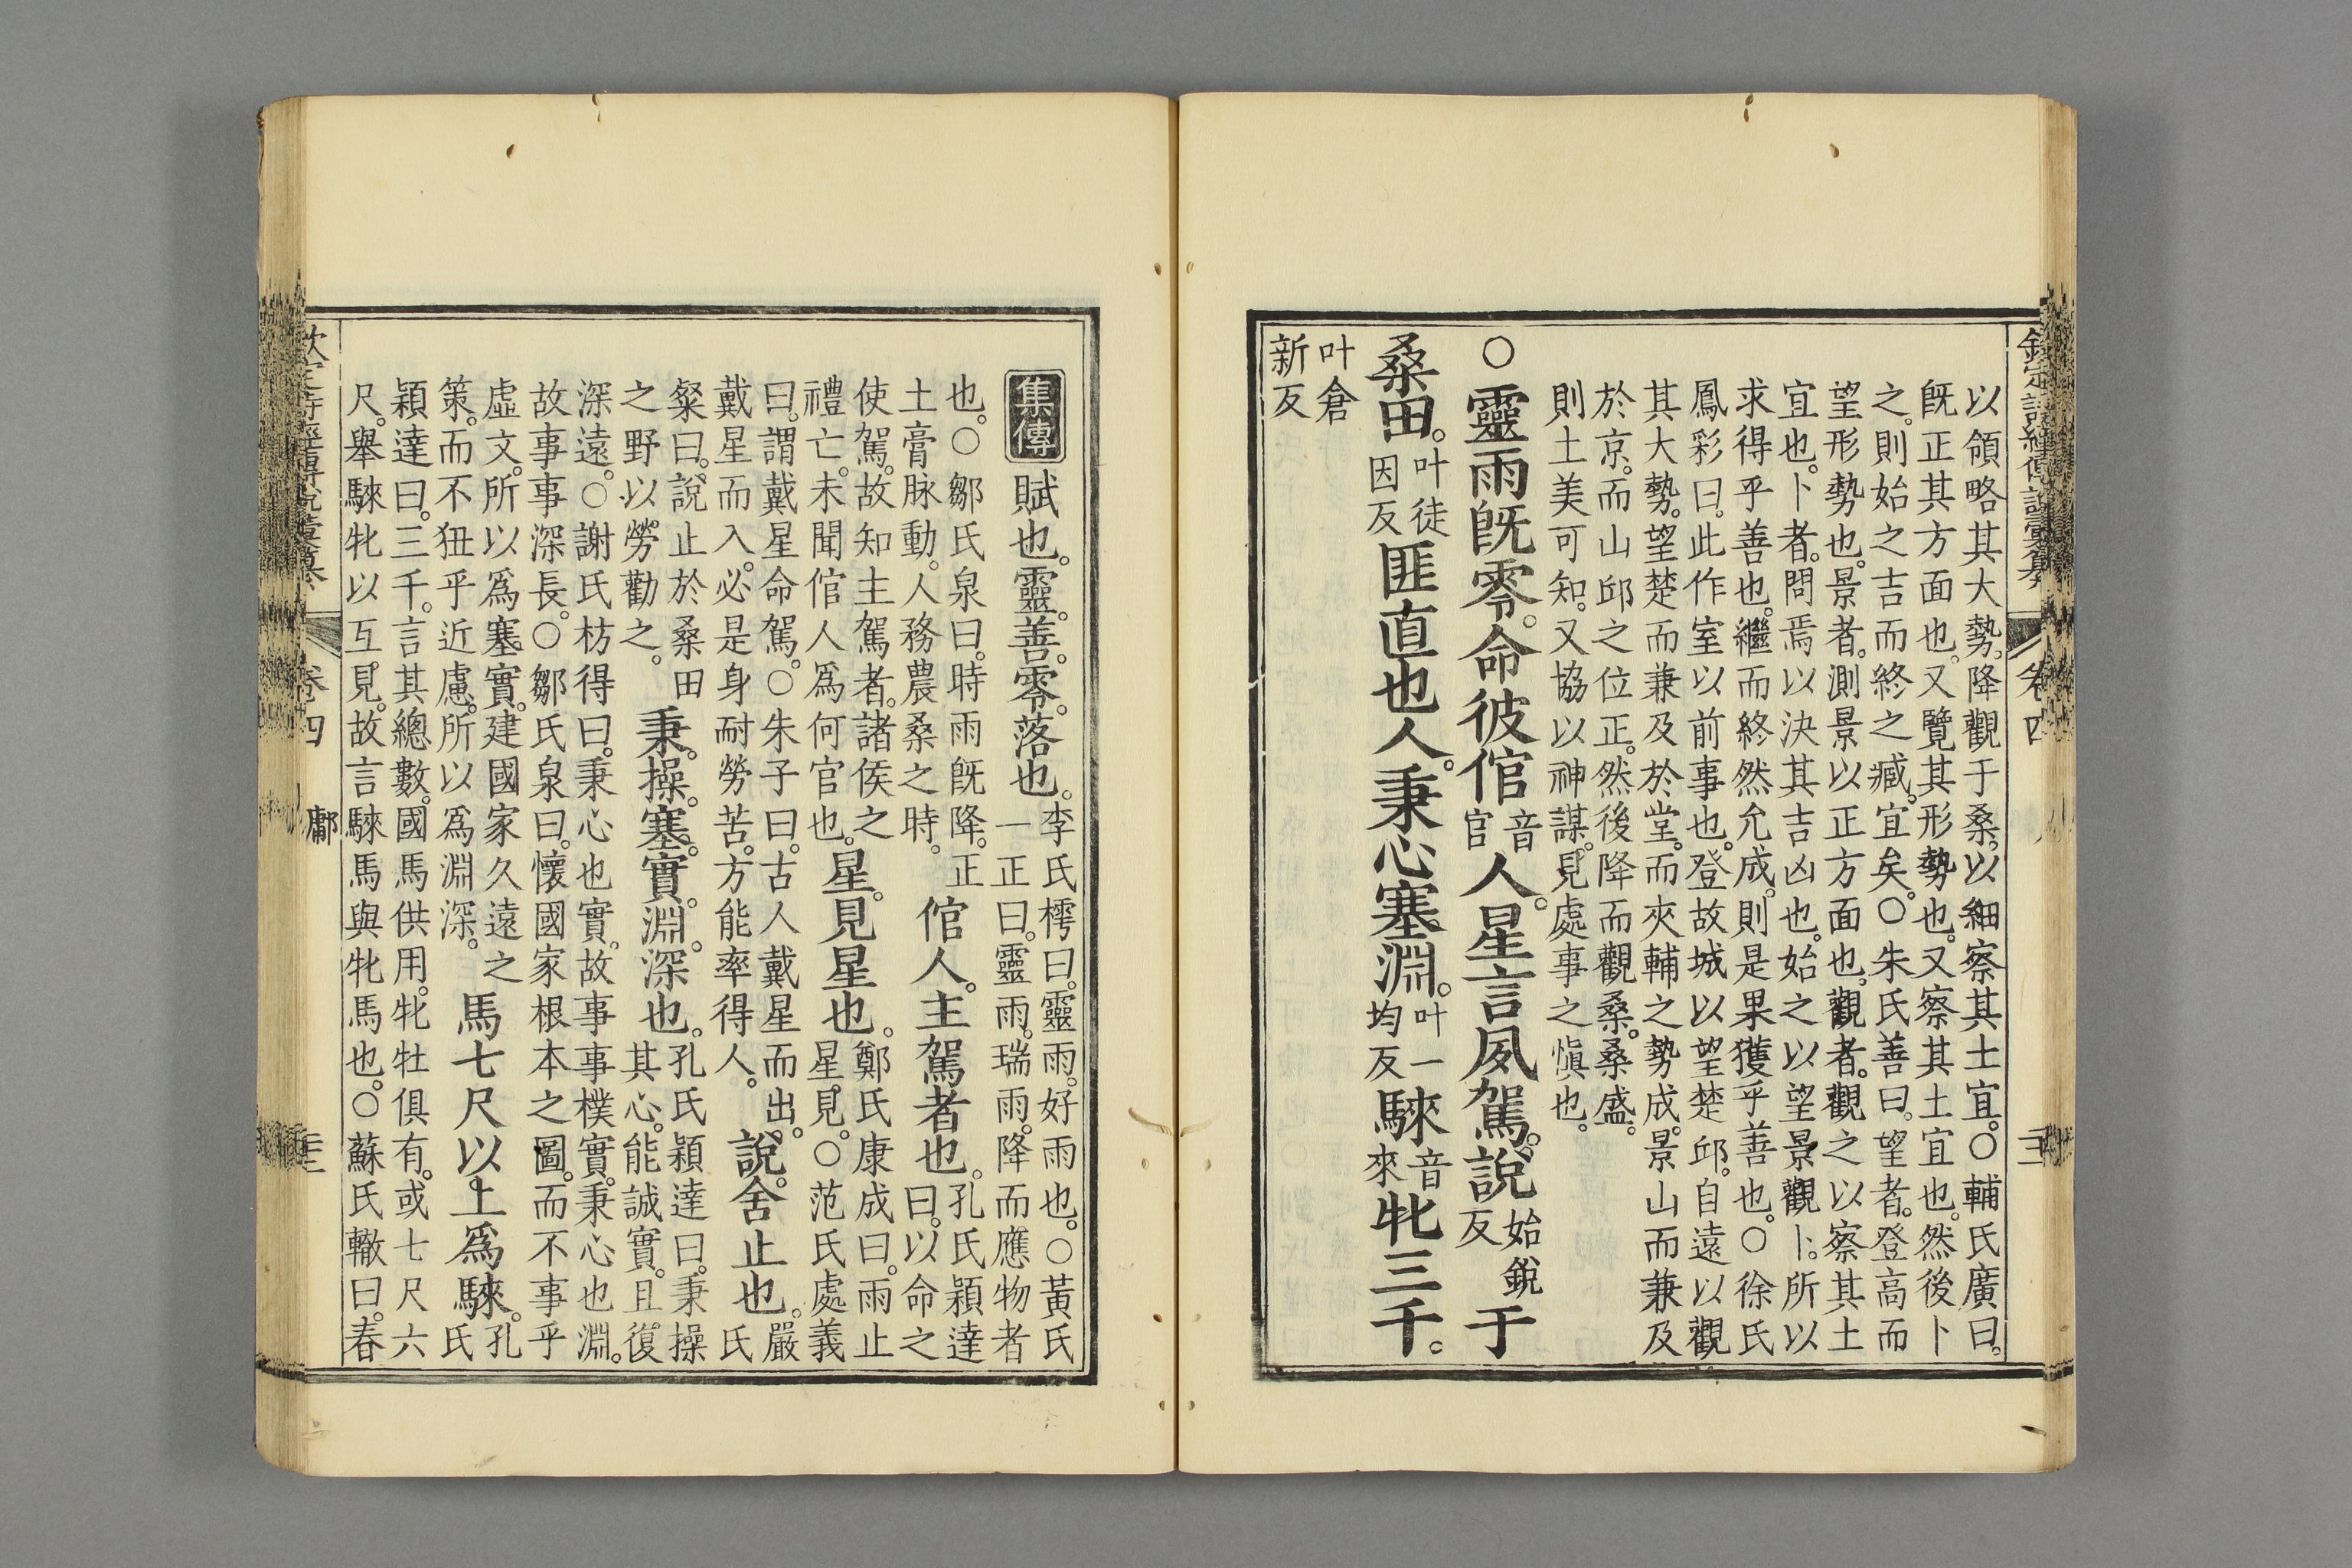 欽定詩經傳說彙纂 卷四
以領略其大勢。降觀于桑。以細察其土宜。○輔氏廣曰。
旣正其方面也。又覽其形勢也。又察其土宜也。然後卜
之。則始之吉而終之臧。宜矣。○朱氏善曰。望者。登高而
望形勢也。景者。測景以正方面也。觀者。觀之以察其土
宜也。卜者。問焉以決其吉凶也。始之以望景觀卜。所以
求得乎善也。繼而終然允成。則是果獲乎善也。○徐氏
鳳彩曰。此作室以前事也。登故城以望楚邱。自遠以觀
其大勢。望楚而兼及於堂。而夾輔之勢成。景山而兼及
於京。而山邱之位正。然後降而觀桑。桑盛。
則土美可知。又協以神謀。見處事之愼也。
○靈雨旣零。命彼倌音官人。星言夙駕。說始銳反于
桑田。叶徒因反匪直也人。秉心塞淵。叶一均反騋音來牝三千。
叶倉
新反
集傳 賦也。靈。善。零。落也。李氏樗曰。靈雨。好雨也。○黃氏
一正曰。靈雨。瑞雨。降而應物者
也。○鄒氏泉曰。時雨旣降。正
土膏脉動。人務農桑之時。倌人。主駕者也。孔氏穎達曰。以命之
使駕。故知主駕者。諸侯之
禮亡。未聞倌人爲何官也。星。見星也。鄭氏康成曰。雨止
星見。○范氏處義
曰。謂戴星命駕。○朱子曰。古人戴星而出。
戴星而入。必是身耐勞苦。方能率得人。說。舍止也。嚴氏
粲曰。說止於桑田
之野以勞勸之。秉。操。塞。實。淵。深也。孔氏穎達曰。秉操
其心。能誠實。且復
深遠。○謝氏枋得曰。秉心也實。故事事樸實。秉心也淵。
故事事深長。○鄒氏泉曰。懷國家根本之圖。而不事乎
虛文。所以爲塞實。建國家久遠之
策。而不狃乎近慮。所以爲淵深。馬七尺以上爲騋。孔氏
穎達曰。三千。言其總數。國馬供用。牝牡俱有。或七尺六
尺。舉騋牝以互見。故言騋馬與牝馬也。○蘇氏轍曰。春
欽定詩經傳說彙纂 卷四 鄘